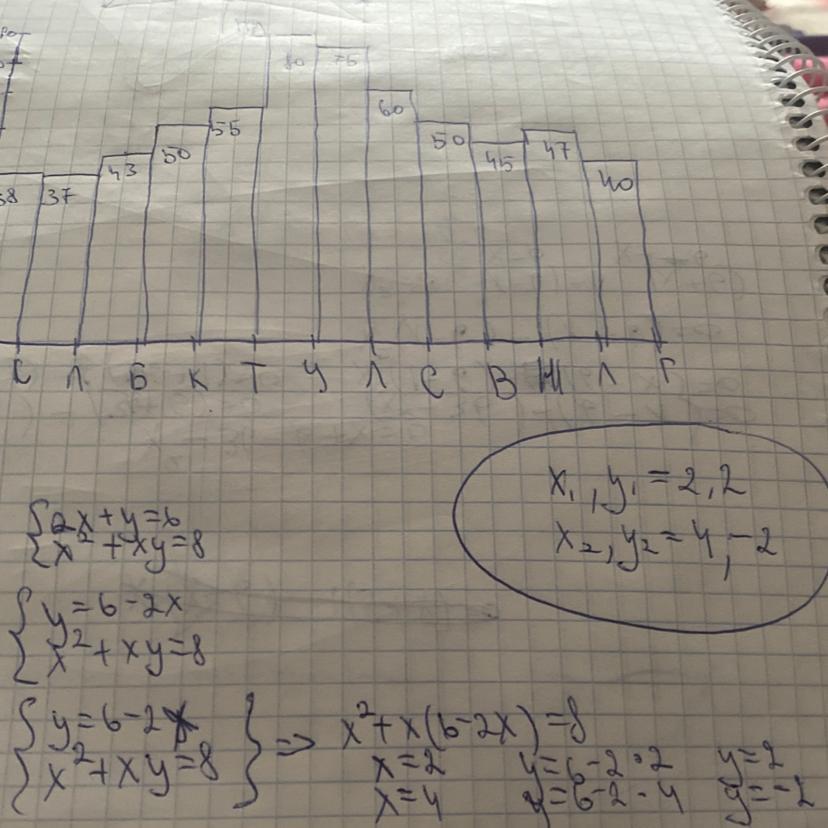 80
38 37 43 50 55 80 75 60 50 45 47 40
С Л Б К Т У Л С В Ж Л Г
{2x+y=6
{x²+xy=8
x₁,y₁=2,2
x₂,y₂=4,-2
{y=6-2x
{x²+xy=8
{y=6-2x
{x²+xy=8
} => x²+x(6-2x)=8
x=2 y=6-2·2 y=2
x=4 y=6-2·4 y=-2